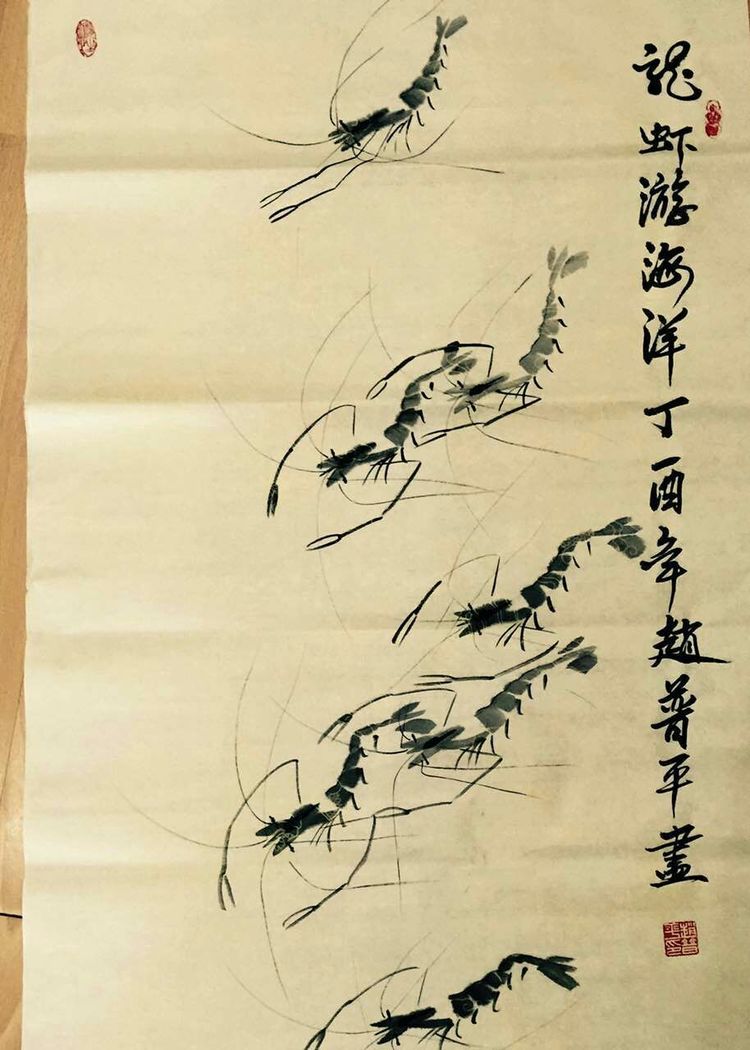 龍虾游海洋丁酉年趙普平畫